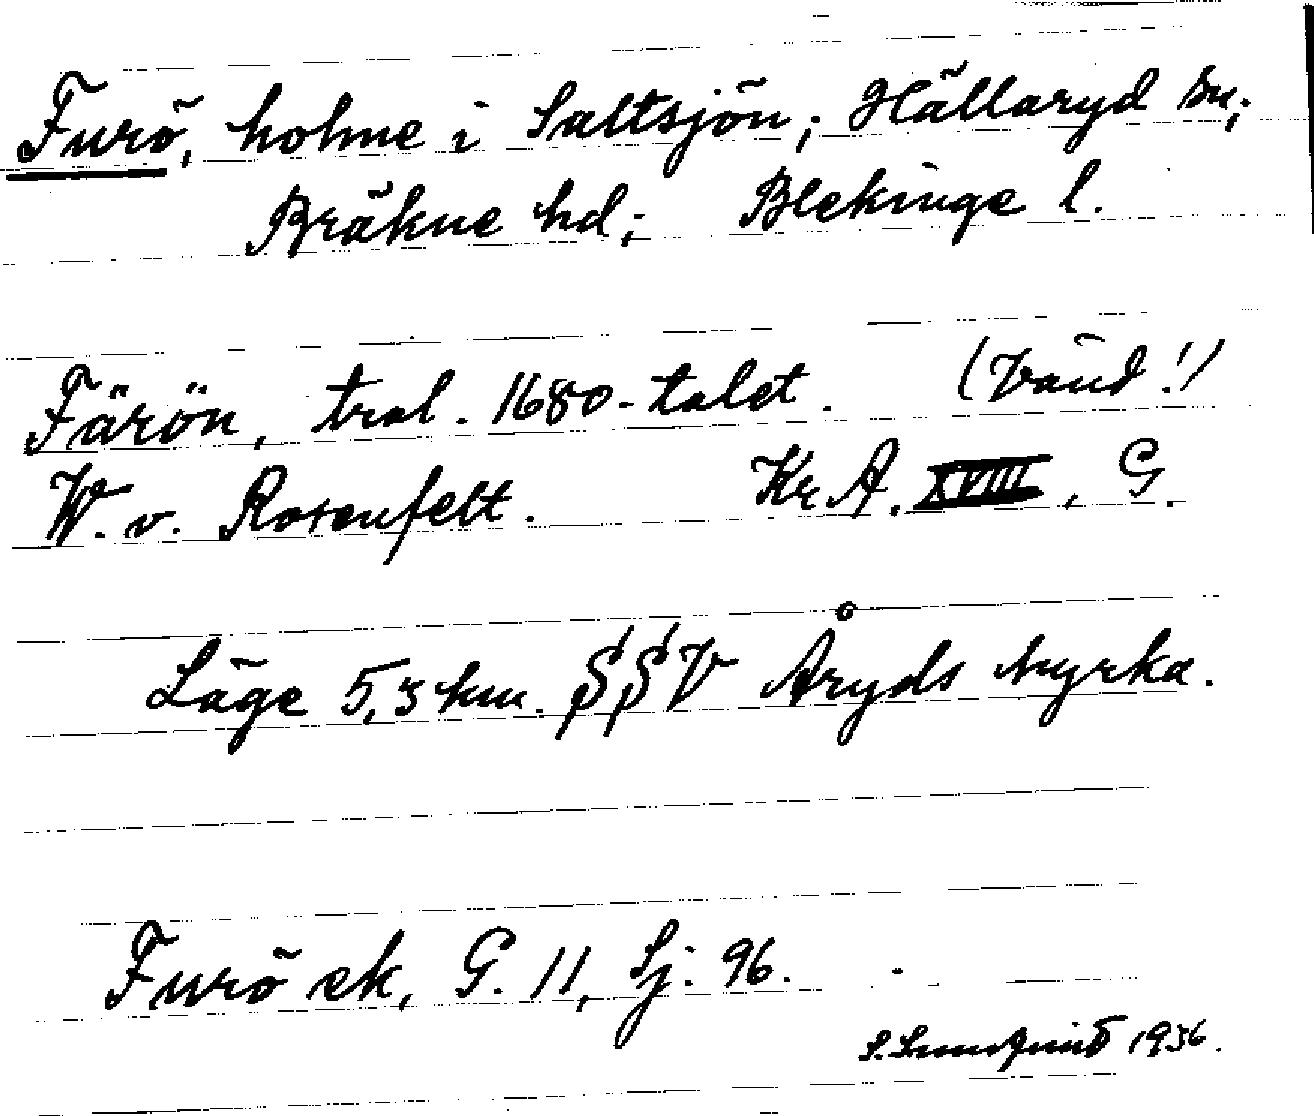 Furö, holme i Saltsjön; Hällaryd sn;
Bräkne hd; Blekinge l.
Färön, trol. 1680-talet. (Vänd!)
W. v. Rosenfelt. Kr A. XVIII, G.
Läge 5,5 km. SSV Åryds kyrka.
Furö ek, G. 11, Sj. 96.
1936.